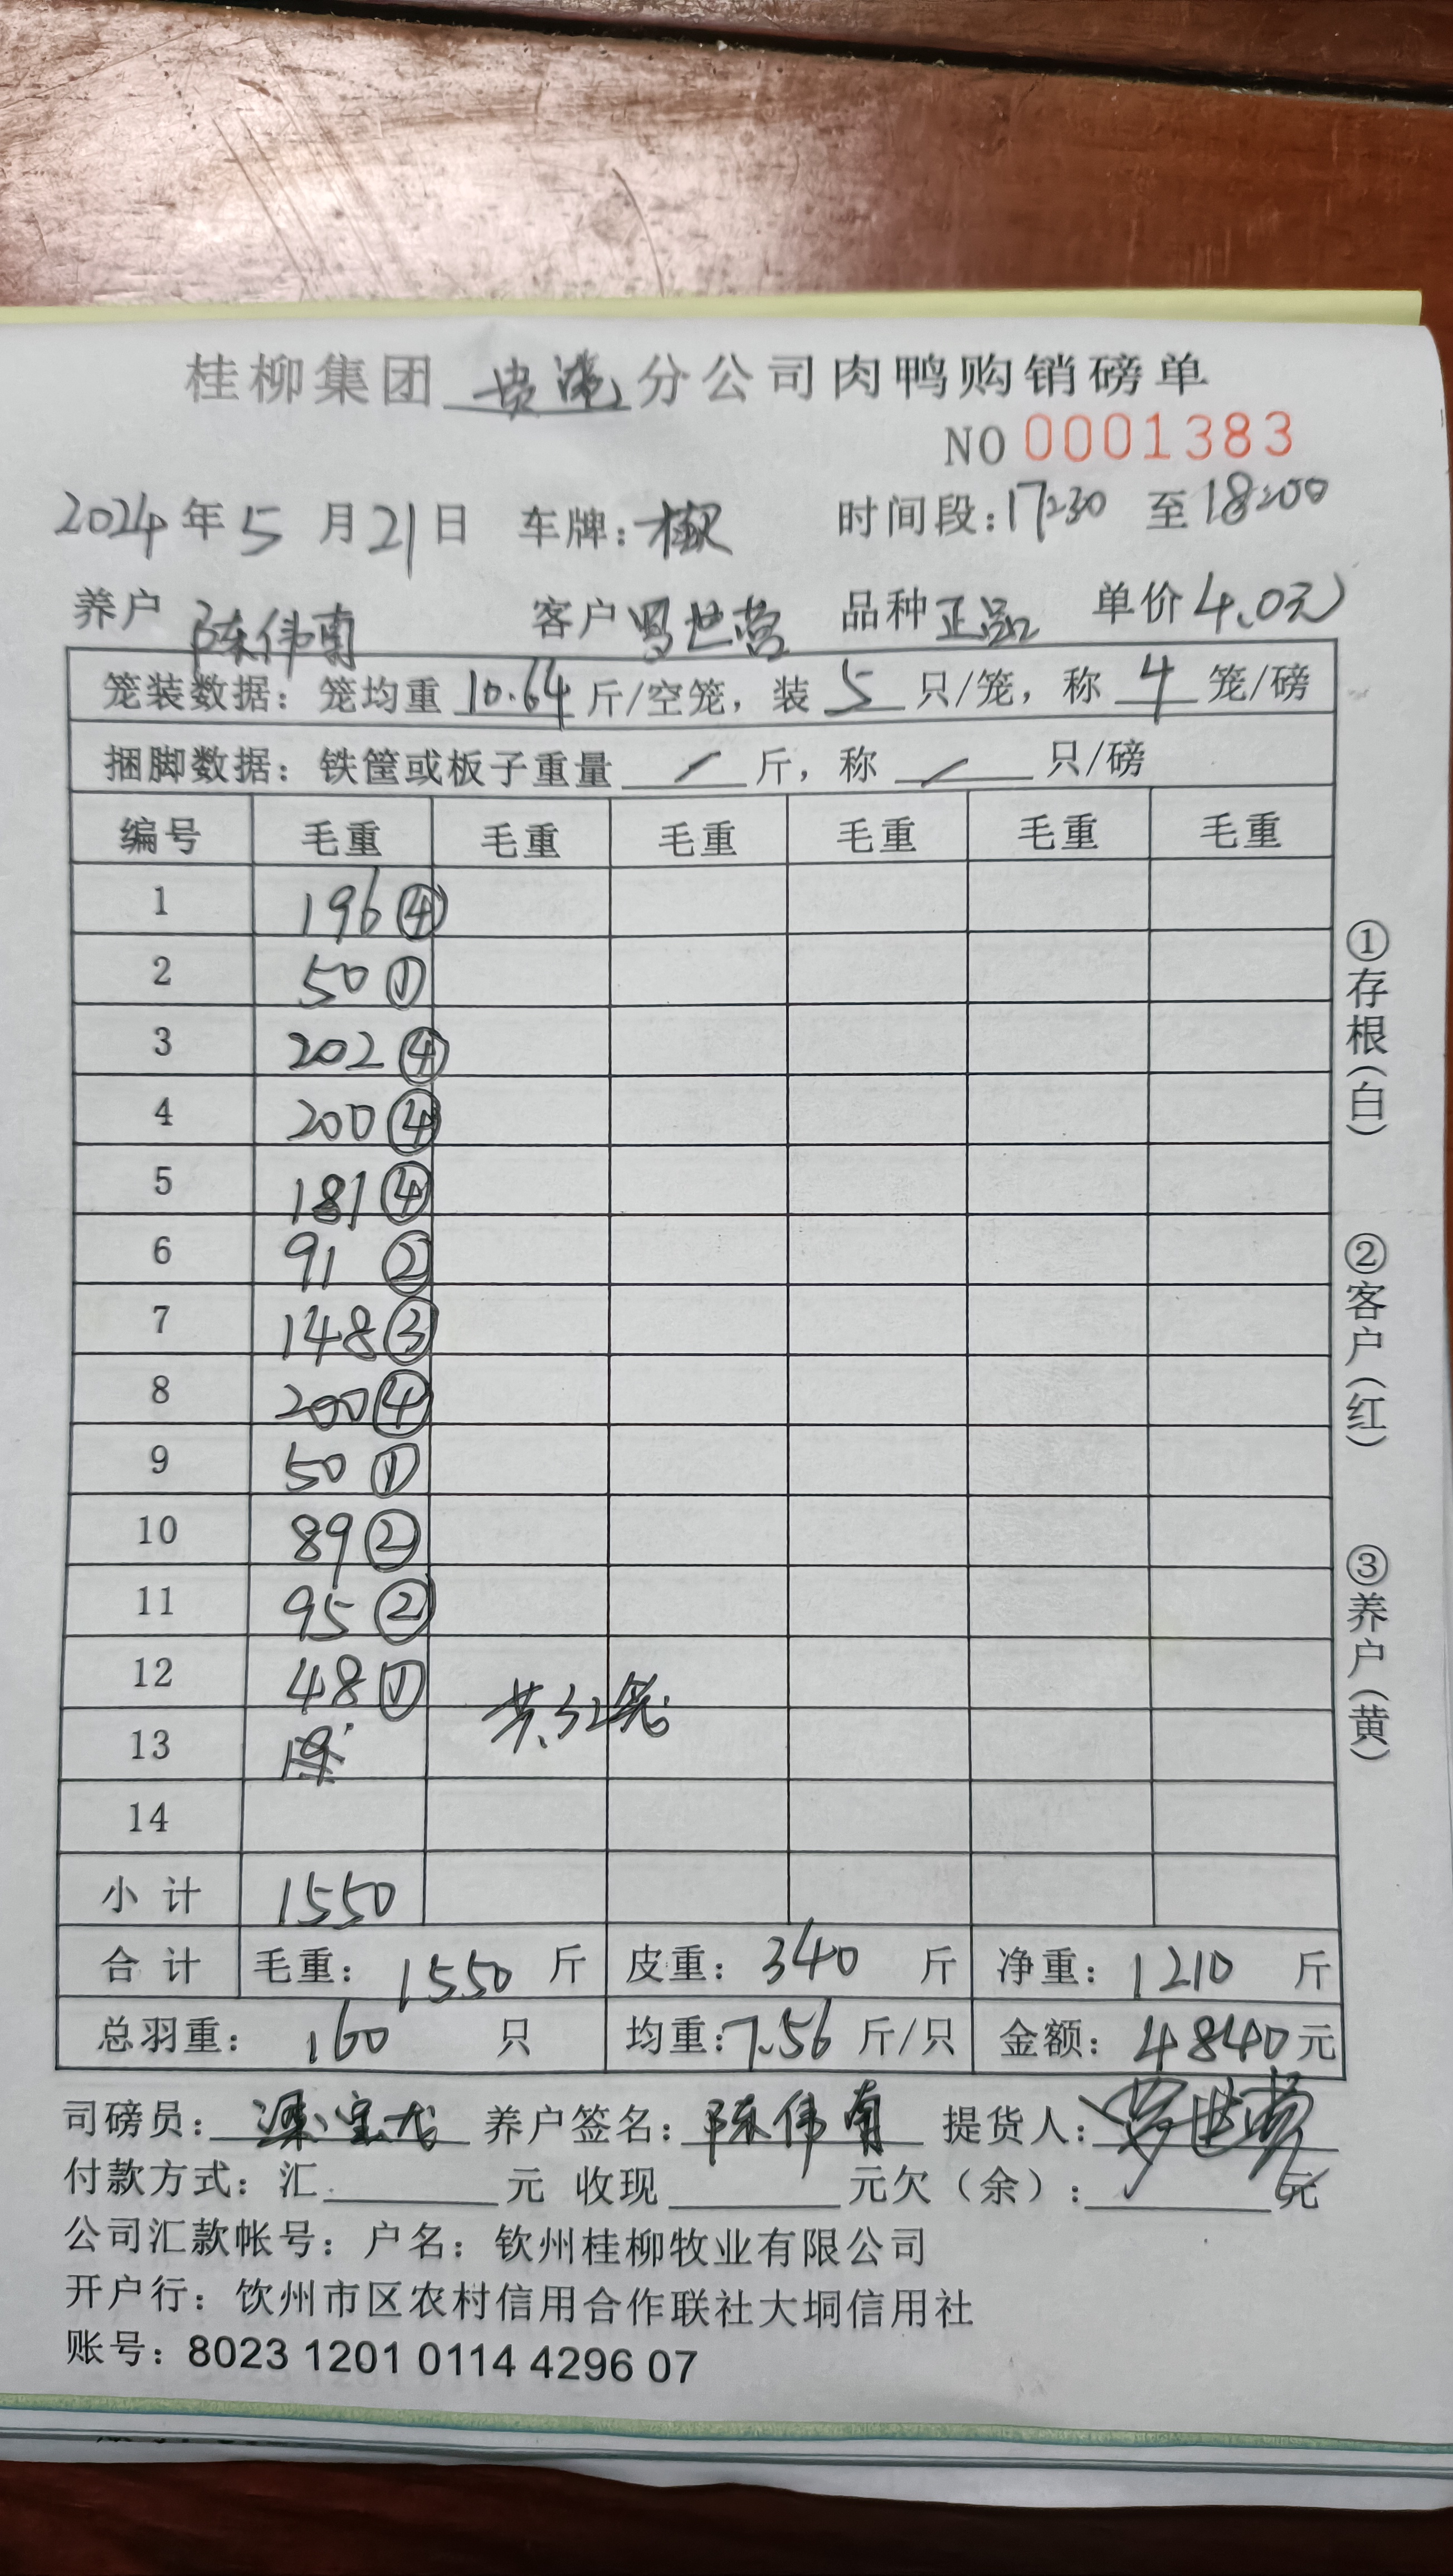 桂柳集团贵港分公司肉鸭购销磅单
NO 0001383
2024年5月21日 车牌: 时间段:17:30 至18:00
养户 陈伟南 客户 罗世营 品种 正品 单价 4.0元
笼装数据：笼均重 10.64 斤/空笼，装 5 只/笼，称 4 笼/磅
捆脚数据：铁筐或板子重量 / 斤，称 / 只/磅
编号 毛重 毛重 毛重 毛重 毛重 毛重
1 196 ④
2 50 ①
3 202 ④
4 200 ④
5 181 ④
6 91 ②
7 148 ③
8 200 ④
9 50 ①
10 89 ②
11 95 ②
12 48 ① 共32笼
13
14
小计 1550
合计 毛重：1550 斤 皮重：340 斤 净重：1210 斤
总羽重：160 只 均重:7.56 斤/只 金额：4840元
司磅员： 养户签名：陈伟南 提货人:罗世营
付款方式：汇 元 收现 元欠（余）: 元
公司汇款帐号：户名：钦州桂柳牧业有限公司
开户行：钦州市区农村信用合作联社大垌信用社
账号：8023 1201 0114 4296 07
①存根（白）
②客户（红）
③养户（黄）